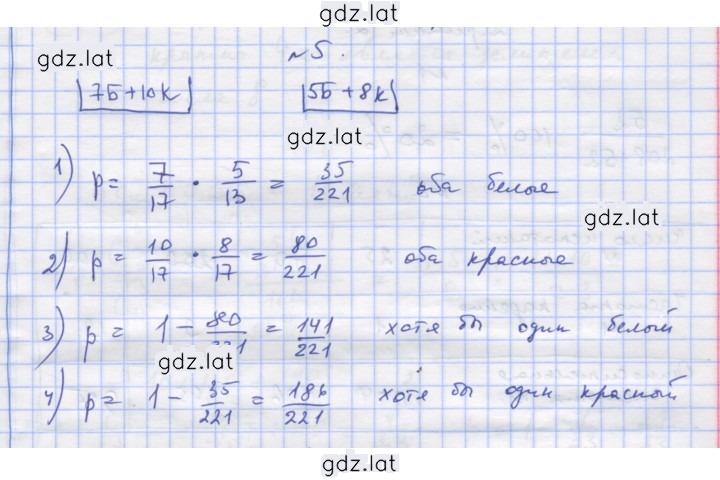 gdz.lat
gdz.lat
№5.
7Б+10К
5Б+8К
gdz.lat
1) p = 7/17 · 5/13 = 35/221 оба белые
gdz.lat
2) p = 10/17 · 8/17 = 80/221 оба красные
3) p = 1 - 80/221 = 141/221 хотя бы один белый
gdz.lat
4) p = 1 - 35/221 = 186/221 хотя бы один красный
gdz.lat